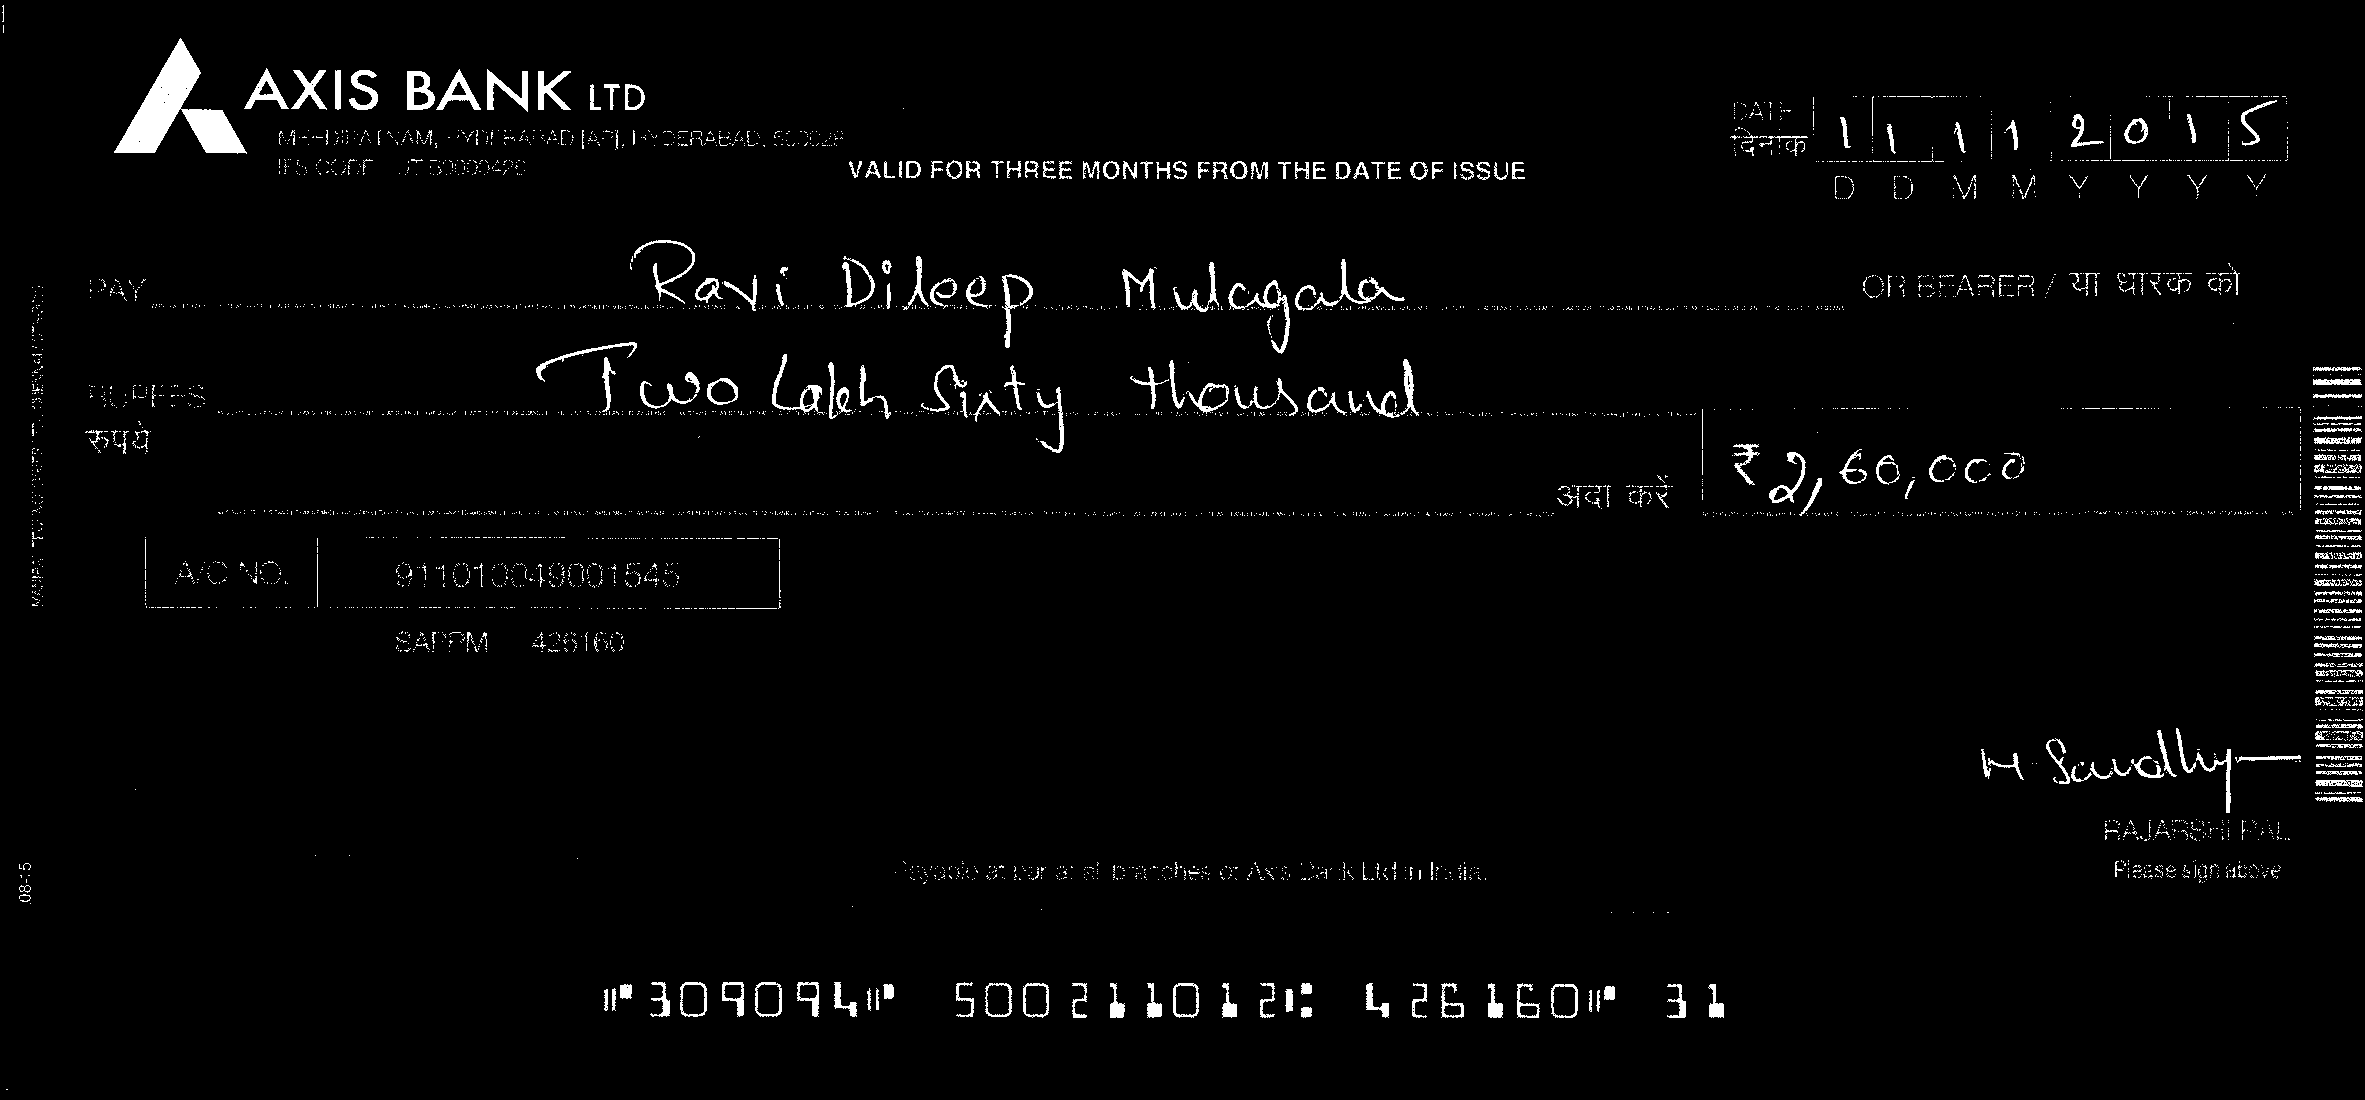 AXIS BANK LTD
MEHDIPATNAM, HYDERABAD [AP], HYDERABAD, 500028
IFS CODE UTIB0000426
VALID FOR THREE MONTHS FROM THE DATE OF ISSUE
DATE
दिनांक
1 1 1 1 2 0 1 5
D D M M Y Y Y Y
PAY Ravi Dileep Mulagala OR BEARER / या धारक को
RUPEES Two Lakh Sixty thousand
रुपये
अदा करें ₹ 2,60,000
A/C NO. 911010049001545
SAPPM 426160
M. Sandhy
RAJARSHI PAL
Payable at par at all branches of Axis Bank Ltd in India.
Please sign above
08-15
⑈309094⑈ 500211012⑆ 426160⑈ 31